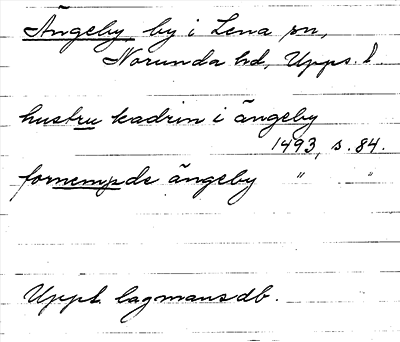 Ängeby, by i Lena sn,
Norunda hd, Upps. l
hustru kadrin i ängeby
1493, s. 84.
fornempde ängeby " "
Uppl. lagmansdb.